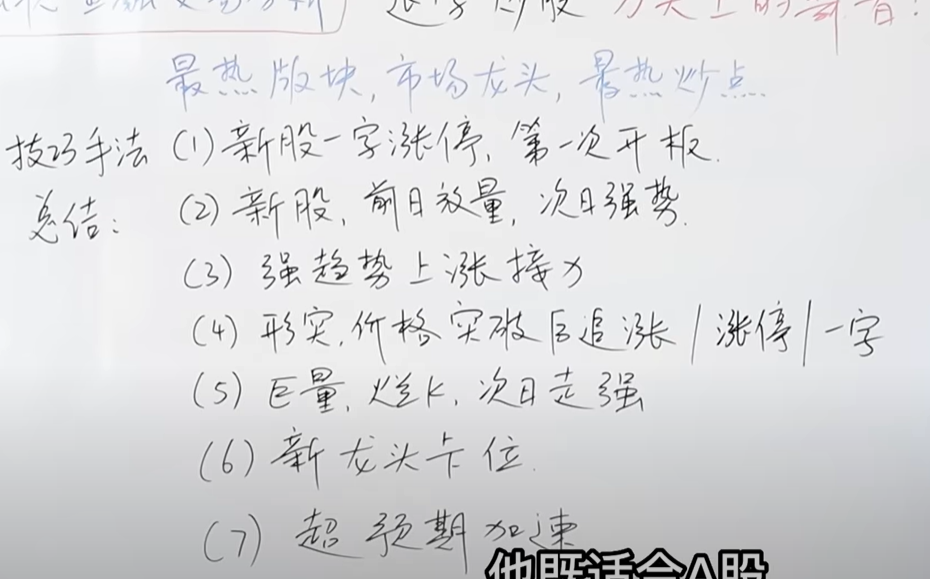 最热版块,市场龙头,最热炒点
技巧手法 (1)新股一字涨停,第一次开板.
总结: (2)新股,前日放量,次日强势.
(3)强趋势上涨接力
(4)形突,价格突破后追涨/涨停/一字
(5)巨量,烂K,次日走强
(6)新龙头卡位.
(7)超预期加速
他既适合A股